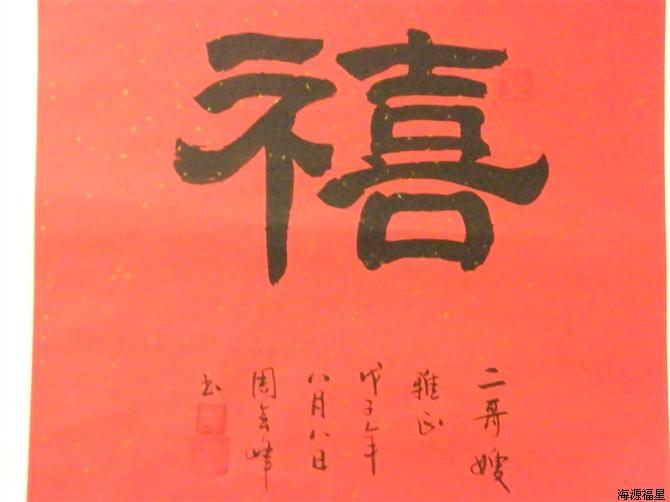 禧
二哥嫂
雅正
戊子年
八月八日
周会峰
书
海源福星